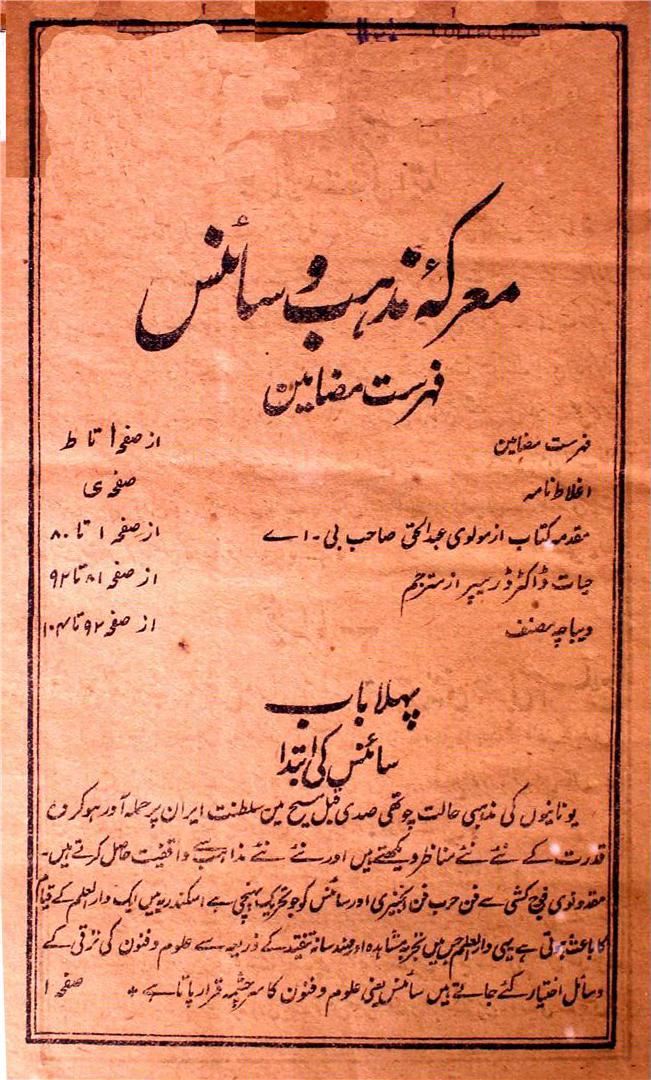 معرکۂ مذہب و سائنس
فہرست مضامین
فہرست مضامین از صفحہ ا تا ط
اغلاط نامہ صفحہ ی
مقدمہ کتاب از مولوی عبدالحق صاحب بی - اے از صفحہ ۱ تا ۸۰
حیات ڈاکٹر ڈریپر از مترجم از صفحہ ۸۱ تا ۹۲
دیباچہ مصنف از صفحہ ۹۲ تا ۱۰۴
پہلا باب
سائنس کی ابتدا
یونانیوں کی مذہبی حالت چوتھی صدی قبل مسیح میں سلطنت ایران پر حملہ آور ہو کر وہ
قدرت کے نئے نئے مناظر دیکھتے ہیں اور نئے نئے مذاہب سے واقفیت حاصل کرتے ہیں۔
مقدونوی فوج کشی سے فن حرب فن انجنیری اور سائنس کو جو تحریک پہنچی ہے اسکندریہ میں ایک دارالعلم کے قیام
کا باعث ہوتی ہے یہی دارالعلم جس میں تجربہ مشاہدہ اور ہندسانہ تنقید کے ذریعہ سے علوم و فنون کی ترقی کے
وسائل اختیار کئے جاتے ہیں سائنس یعنی علوم و فنون کا سرچشمہ قرار پاتا ہے * صفحہ ۱